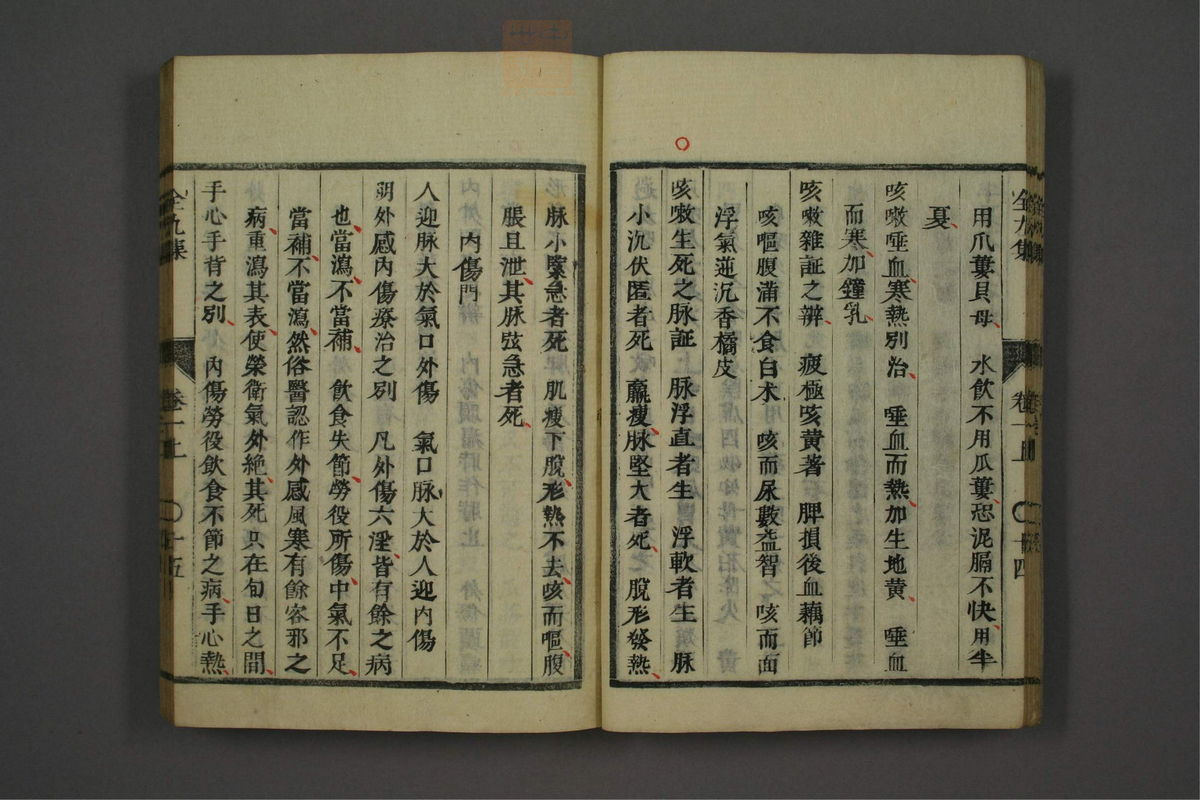 用爪蔞貝母 水飲不用瓜蔞恐泥膈不快用半
夏
咳嗽唾血寒熱別治 唾血而熱加生地黄 唾血
而寒加鐘乳
咳嗽雜証之辨 疲極咳黄蓍 脾損後血藕節
咳嘔腹滿不食白朮 咳而尿數益智 咳而面
浮氣逆沉香橘皮
咳嗽生死之脉証 脉浮直者生 浮軟者生 脉
小沉伏匿者死 羸瘦脉堅大者死 脫形發熱
全九集
卷一上
十四
脉小緊急者死 肌瘦下脫形熱不去咳而嘔腹
脹且泄其脉弦急者死
内傷門
人迎脉大於氣口外傷 氣口脉大於人迎内傷
朙外感内傷療治之別 凡外傷六淫皆有餘之病
也當瀉不當補 飲食失節勞役所傷中氣不足
當補不當瀉然俗醫認作外感風寒有餘客邪之
病重瀉其表使榮衛氣外絶其死只在旬日之間
手心手背之別 内傷勞役飲食不節之病手心熱
全九集
卷一上
十五